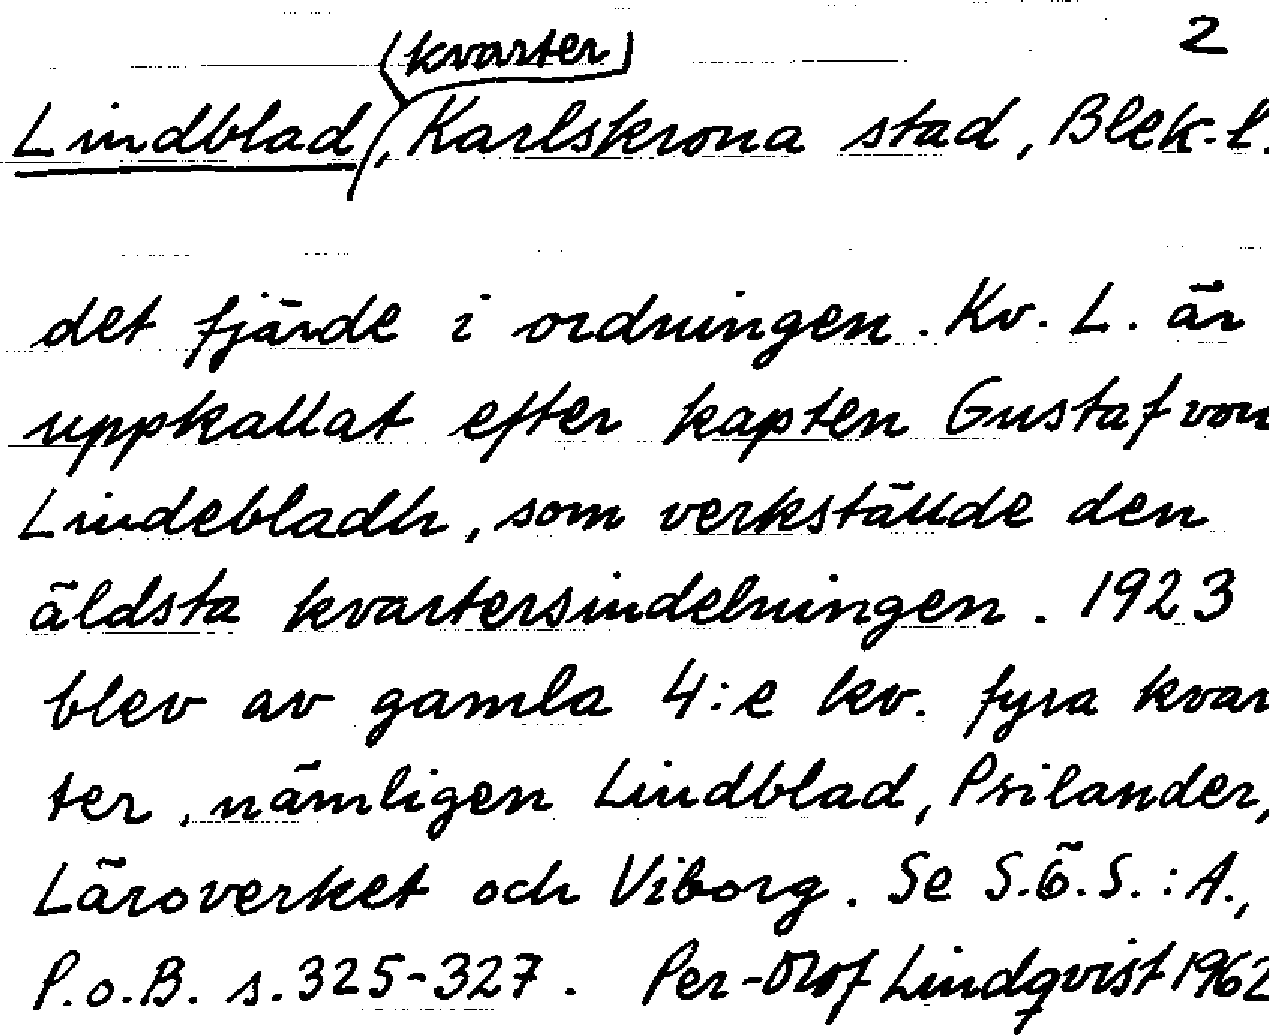 2
(kvarter)
Lindblad, Karlskrona stad, Blek. l.
det fjärde i ordningen. Kv. L. är
uppkallat efter kapten Gustaf von
Lindebladh, som verkställde den
äldsta kvartersindelningen. 1923
blev av gamla 4:e kv. fyra kvar
ter, nämligen Lindblad, Psilander,
Läroverket och Viborg. Se S.Ö.S.:A.,
P.o.B. s. 325-327. Per-Olof Lindqvist 1962